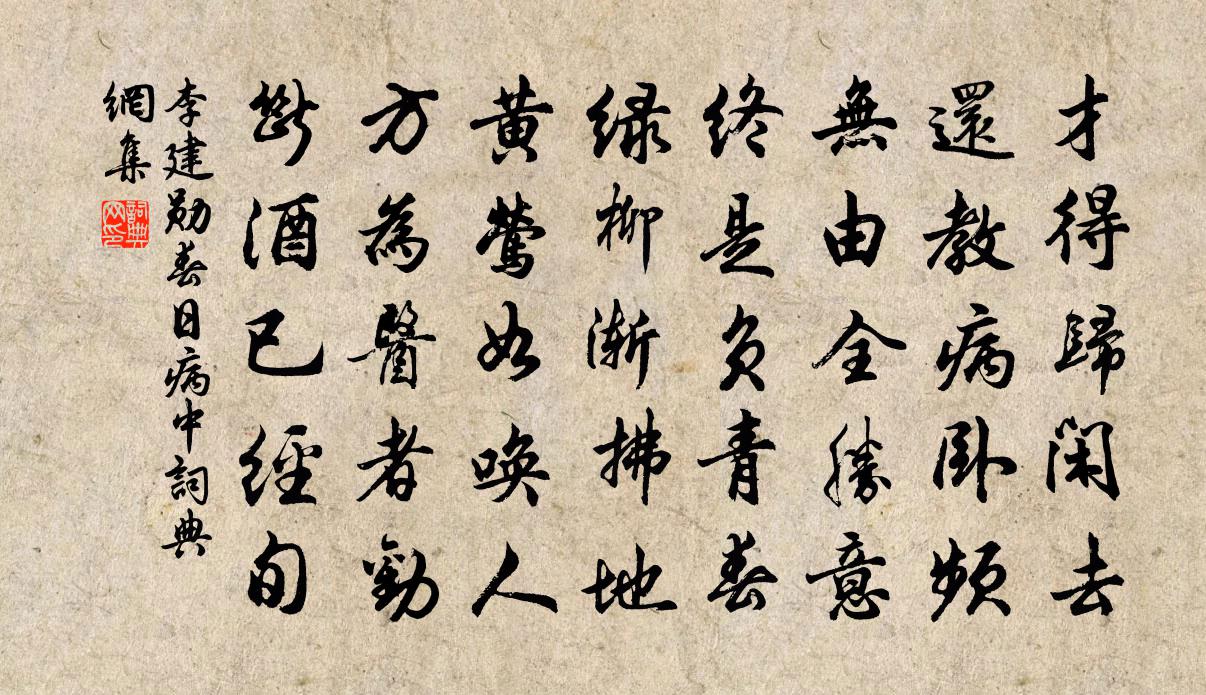 才得歸閑去
還教病臥頻
無由全勝意
終是負青春
綠柳漸拂地
黃鶯如喚人
方為醫者勸
斷酒已經旬
李建勛春日病中詞典
網集
詞典
网印